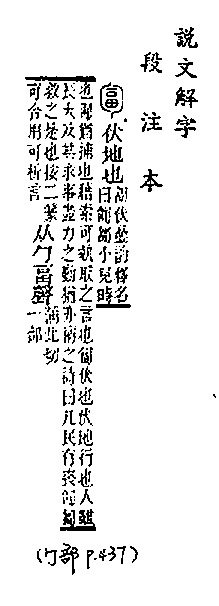 說文解字
段注本
匐 伏地也 匍伏㬪韵釋名
曰匍匐小兒時
也匍猶捕也藉索可執取之言也匐伏也伏地行也人雖
長大及其求事盡力之勤猶亦稱之詩曰凡民有喪匍匐
救之是也按二篆
可合用可析言
从勹畐聲 蒲北切
一部
(勹部 p.437)